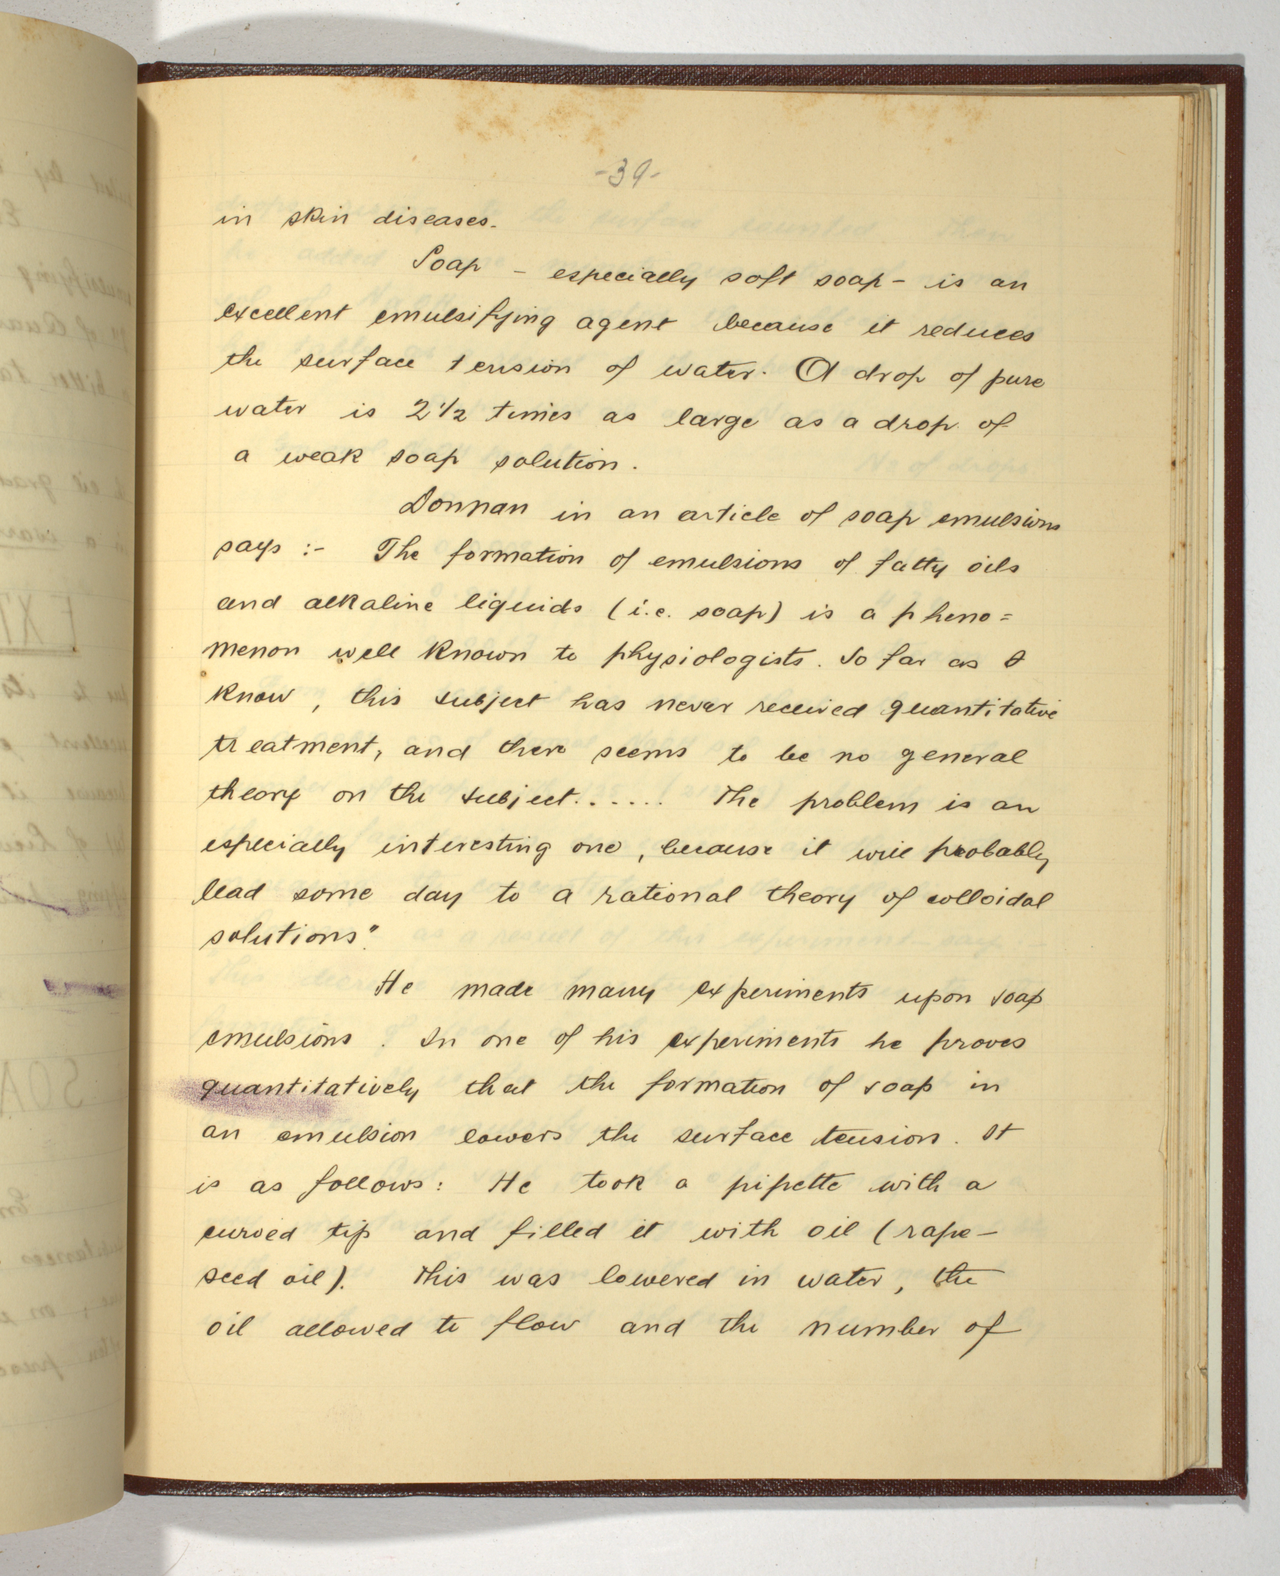 -39-
in skin diseases.
Soap - especially soft soap - is an
excellent emulsifying agent because it reduces
the surface tension of water. A drop of pure
water is 2 1/2 times as large as a drop of
a weak soap solution.
Donnan in an article of soap emulsions
says :- The formation of emulsions of fatty oils
and alkaline liquids (i.e. soap) is a pheno=
menon well known to physiologists. So far as I
know, this subject has never received quantitative
treatment, and there seems to be no general
theory on the subject...... The problem is an
especially interesting one, because it will probably
lead some day to a rational theory of colloidal
solutions".
He made many experiments upon soap
emulsions. In one of his experiments he proves
quantitatively that the formation of soap in
an emulsion lowers the surface tension. It
is as follows: He took a pipette with a
curved tip and filled it with oil (rape-
seed oil). This was lowered in water, the
oil allowed to flow and the number of